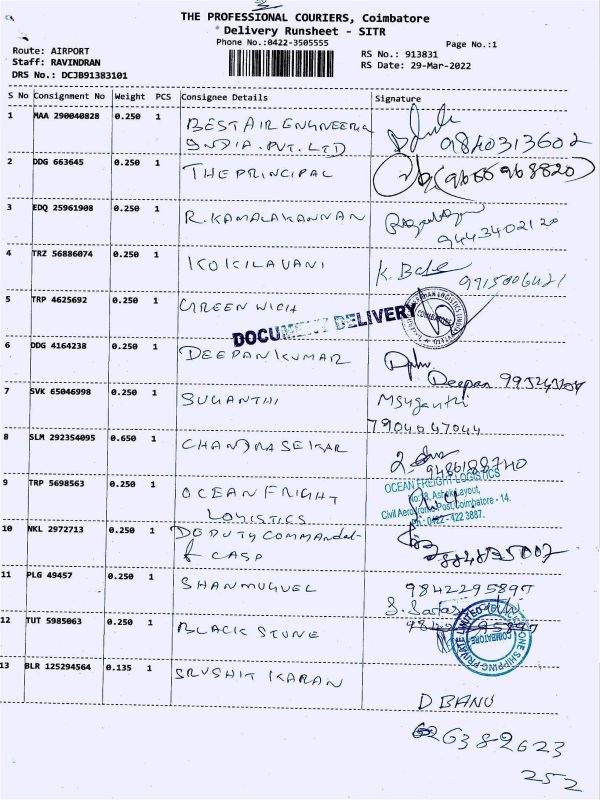 THE PROFESSIONAL COURIERS, Coimbatore
Delivery Runsheet - SITR
Phone No.:0422-3505555
Page No.:1
Route: AIRPORT
Staff: RAVINDRAN
DRS No.: DCJB91383101
RS No.: 913831
RS Date: 29-Mar-2022
S No Consignment No Weight PCS Consignee Details Signature
1 MAA 290040828 0.250 1 BEST AIR ENGINEERING
INDIA . PVT. LTD 9840313602
2 DDG 663645 0.250 1 THE PRINCIPAL
3 EDQ 25961908 0.250 1 R. KAMALAKANNAN
9443402120
4 TRZ 56886074 0.250 1 KOKILAVANI K. Bale
5 TRP 4625692 0.250 1 GREEN WICH
DOCUMENT DELIVERY
6 DDG 4164238 0.250 1 DEEPAN KUMAR
Deepan
7 SVK 65046998 0.250 1 SUGANTHI M Suganthi
7904047044
8 SLM 292354095 0.650 1 CHANDRASEKAR
9486188740
OCEAN FREIGHT LOGISTICS
9 TRP 5698563 0.250 1 OCEAN FRIGHT
LOGISTICS
No:18, Ashok Layout,
Civil Aerodrome Post, Coimbatore - 14.
Ph : 0422 - 422 3887.
10 NKL 2972713 0.250 1 DEPUTY COMMANDAT
CASP
11 PLG 49457 0.250 1 SHANMUGVEL 9842295897
12 TUT 5985063 0.250 1 BLACK STONE
COIMBATORE
13 BLR 125294564 0.135 1 SRUSHIT KARAN
D BANU
626382623
252